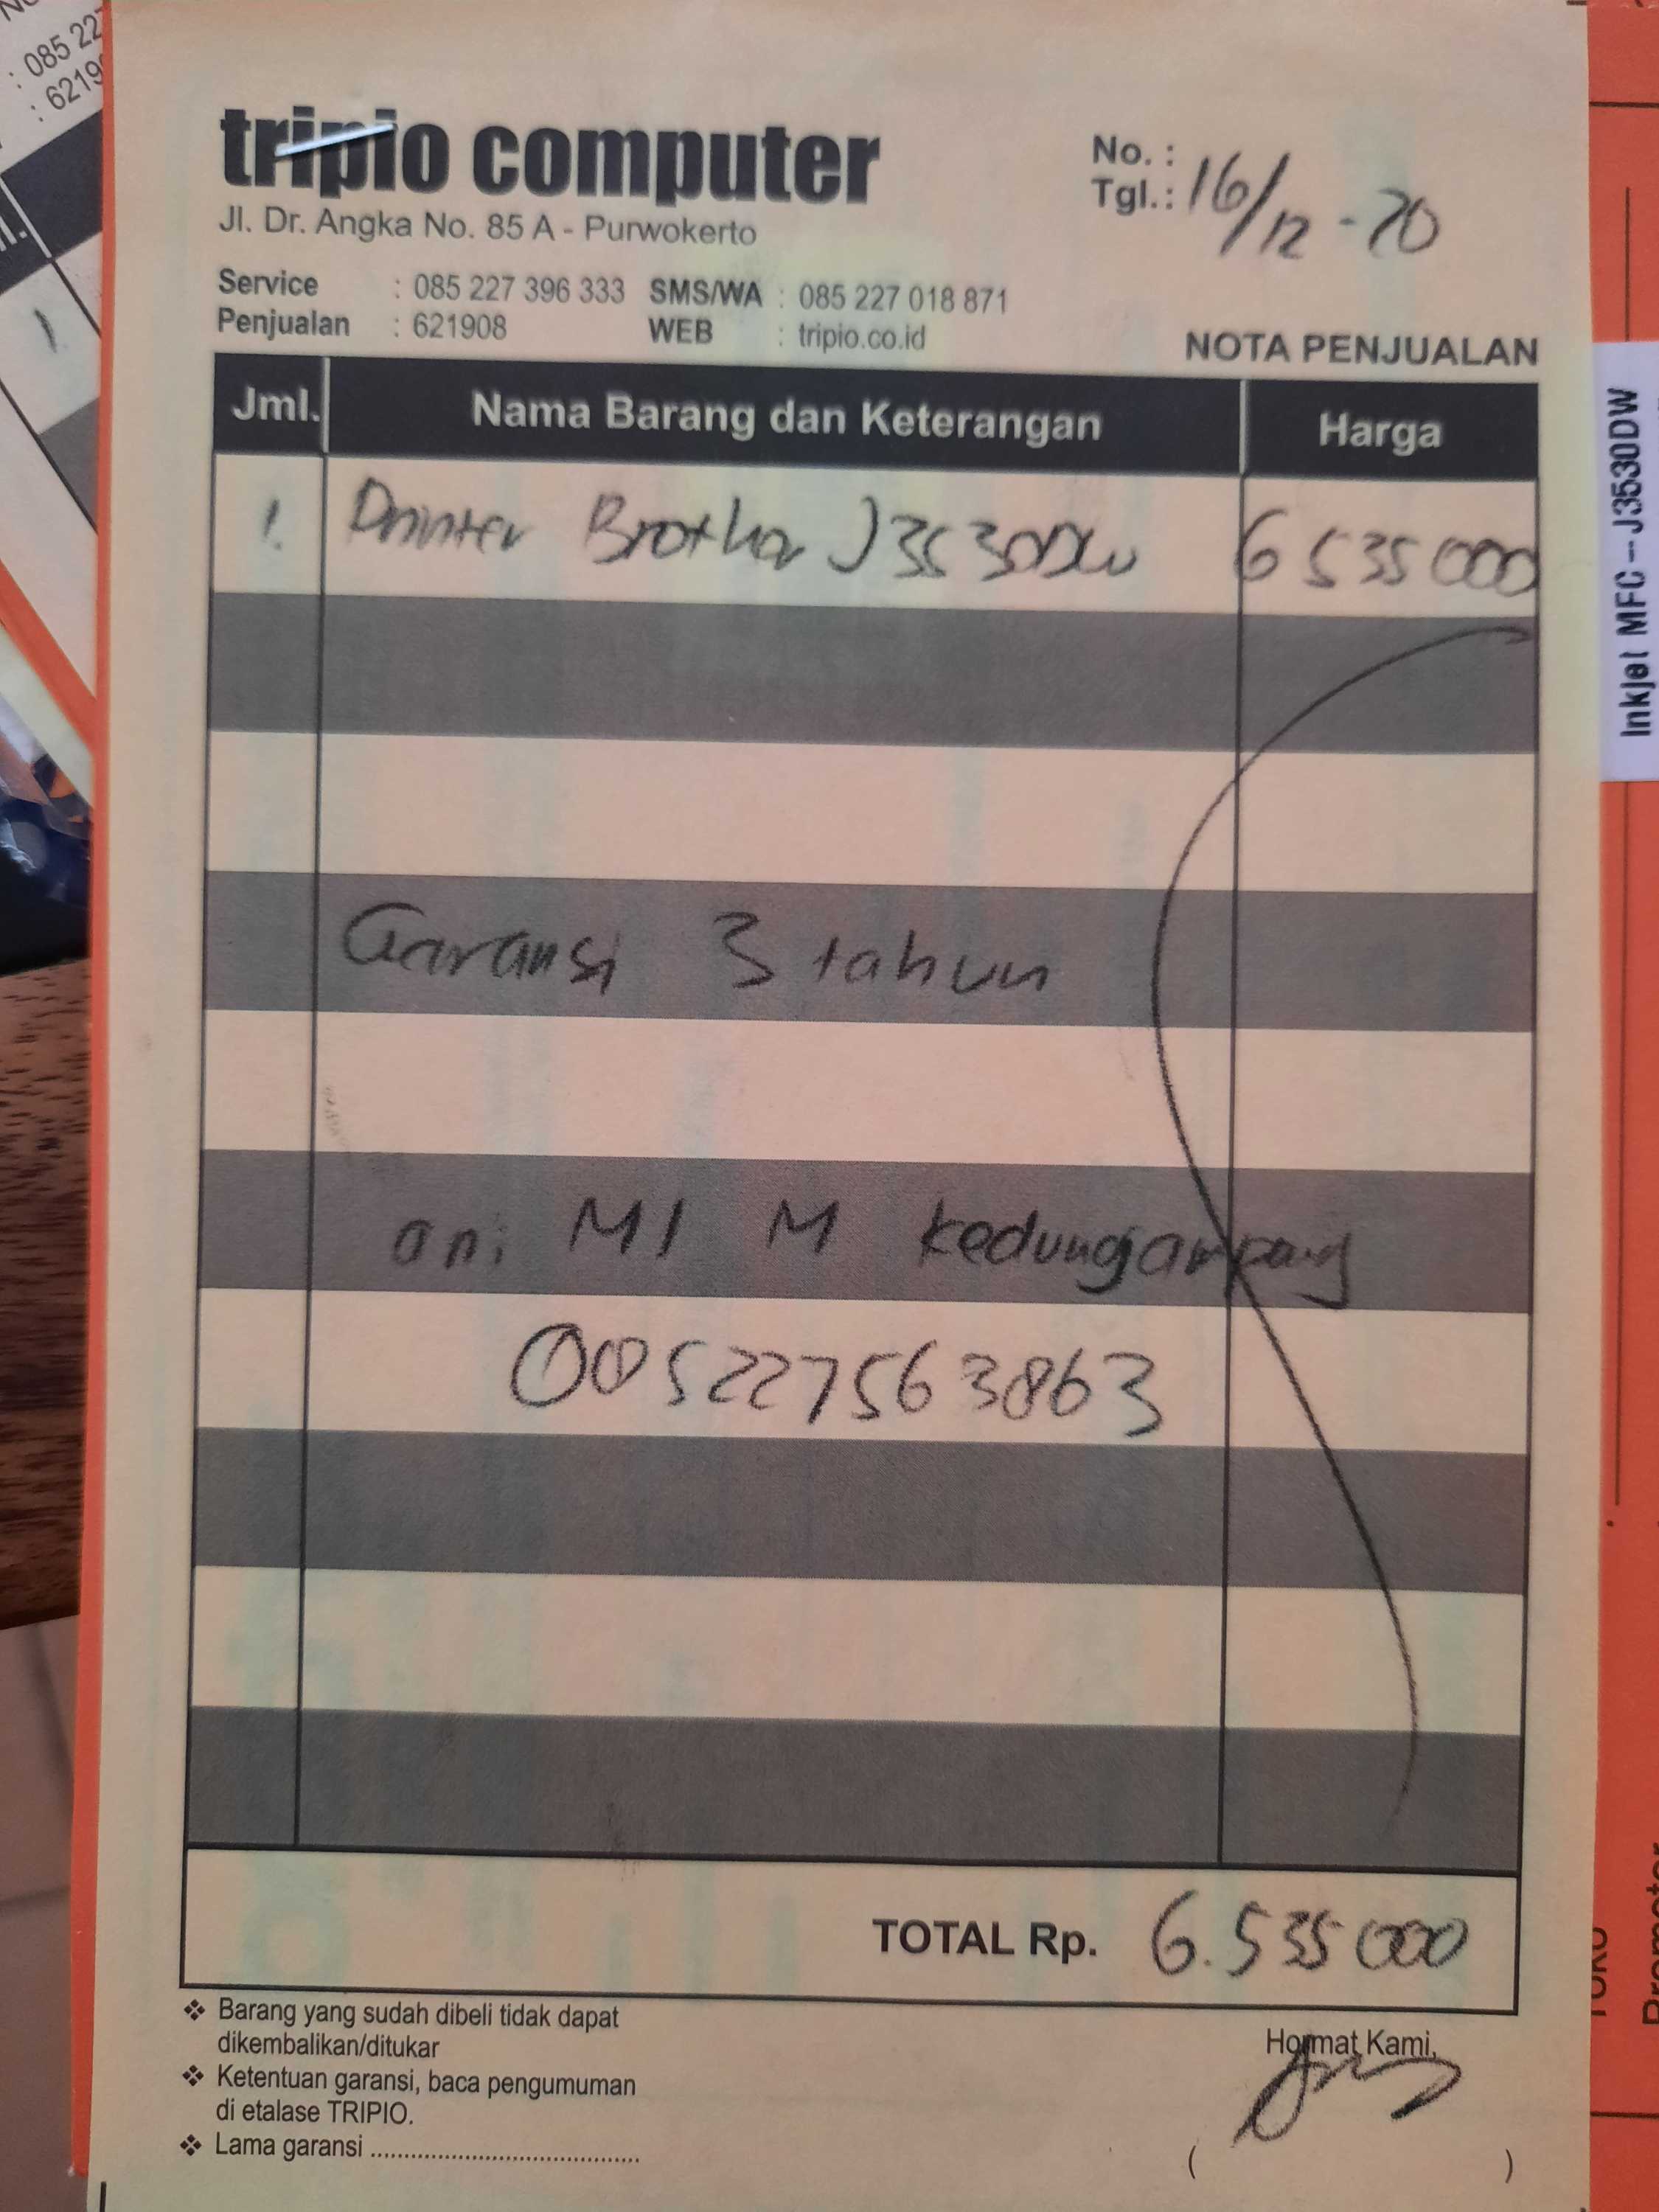 : 085 22
: 6219
tripio computer
Jl. Dr. Angka No. 85 A - Purwokerto
No. :
Tgl.: 16/12 - 20
Service : 085 227 396 333 SMS/WA : 085 227 018 871
Penjualan : 621908 WEB : tripio.co.id
NOTA PENJUALAN
Jml. Nama Barang dan Keterangan Harga
1. Printer Brother J3530DW 6 535 000
Garansi 3 tahun
an: MI M Kedungjampang
005227563863
TOTAL Rp. 6.535 000
❖ Barang yang sudah dibeli tidak dapat
dikembalikan/ditukar
❖ Ketentuan garansi, baca pengumuman
di etalase TRIPIO.
❖ Lama garansi ........................................
Hormat Kami,
( )
Inkjet MFC-J3530DW